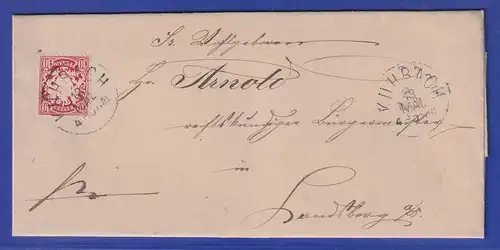 Sr. Wohlgeboren
Hr. Arnold
rechtskundiger Bürgermeister
in
Landsberg a/L.
KÜHBACH